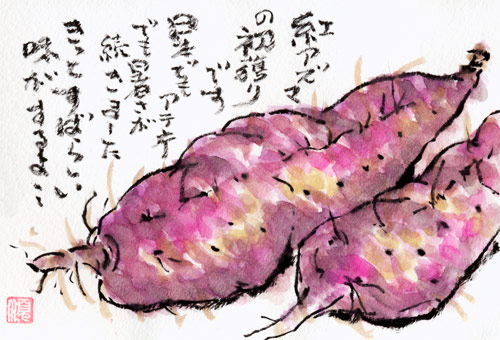 紅アズマ
の初獲り
です
日本でもアテネ
でも暑さが
続きました
きっとすばらしい
味がするよ…